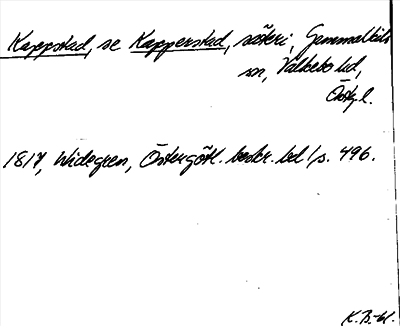 Kappstad, se Kapperstad, säteri, Gammalkils
sn, Valkebo hd,
Östg. l.
1817, Widegren, Östergötl. beskr. bd 1 s. 496.
K. B-bl.